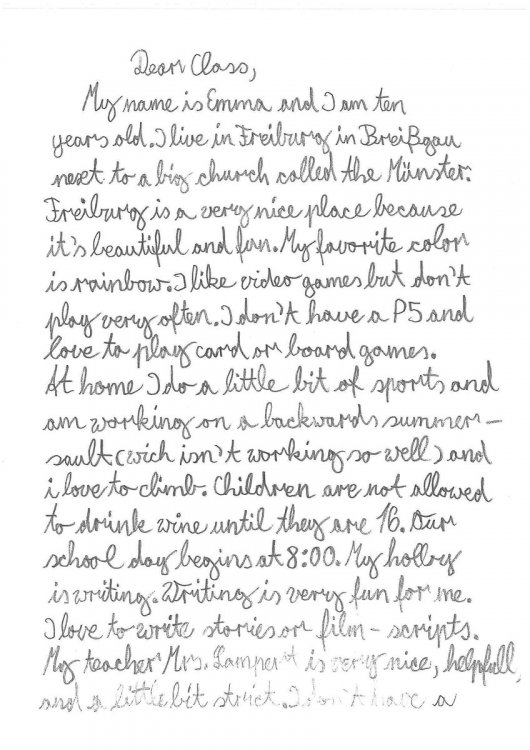 Dear Class,
My name is Emma and I am ten
years old. I live in Freiburg in Breißgau
next to a big church called the Münster.
Freiburg is a very nice place because
it's beautiful and fun. My favorite color
is rainbow. I like video games but don't
play very often. I don't have a P5 and
love to play card or board games.
At home I do a little bit of sports and
am working on a backwards summer-
sault (wich isn't working so well) and
i love to climb. Children are not allowed
to drink wine until they are 16. Our
school day begins at 8:00. My hobby
is writing. Writing is very fun for me.
I love to write stories or film-scripts.
My teacher Mrs. Lampert is very nice, helpfull,
and a little bit strict. I don't have a